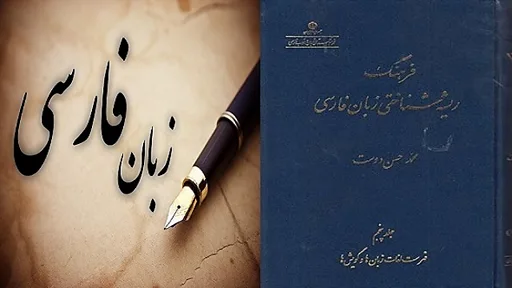 زبان فارسی
فرهنگ
ریشه‌شناختی زبان فارسی
محمد حسن‌دوست
جلد پنجم
فهرست لغات زبان‌ها و گویش‌ها